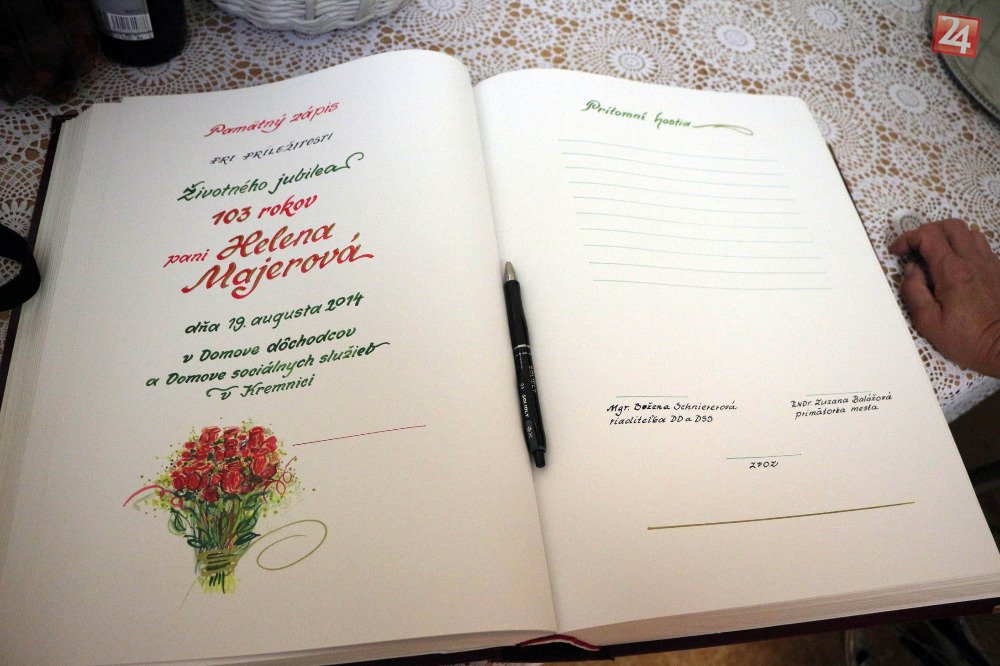 Pamätný zápis
PRI PRÍLEŽITOSTI
Životného jubilea
103 rokov
pani Helena
Majerová
dňa 19. augusta 2014
v Domove dôchodcov
a Domove sociálnych služieb
v Kremnici
Prítomní hostia
Mgr. Božena Schniererová
riaditeľka DD a DSS
RNDr. Zuzana Balážová
primátorka mesta
ZPOZ
24